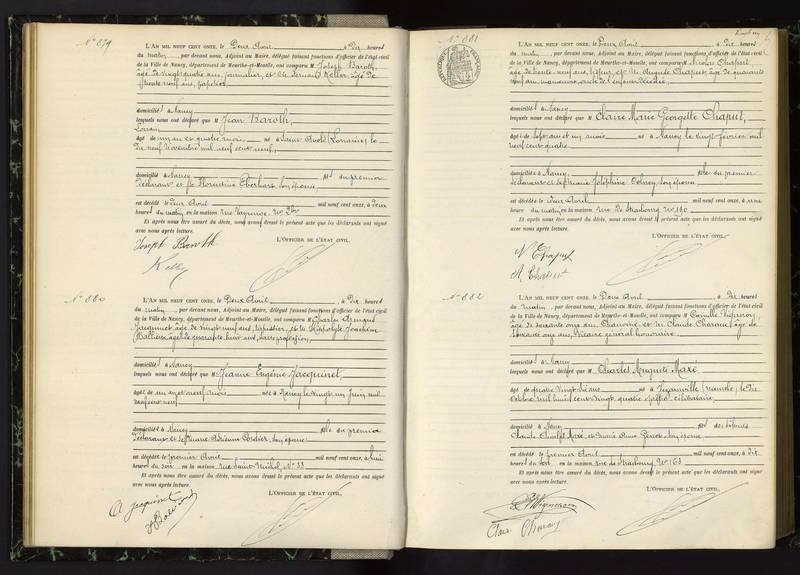 N° 879
L'AN MIL NEUF CENT ONZE, le Deux Avril, à Dix heures
du matin, par devant nous, Adjoint au Maire, délégué faisant fonctions d'officier de l'état civil
de la Ville de Nancy, département de Meurthe-et-Moselle, ont comparu M Joseph Baroth,
âgé de vingt quatre ans, journalier, et M. Fernand Keller, âgé de
trente neuf ans, papetier
domicilié à Nancy
lesquels nous ont déclaré que M Jean Baroth,
âgé d'un an et quatre mois né à Saint Avold (Lorraine) le
dix neuf Novembre mil neuf cent neuf,
domicilié à Nancy fils du premier
déclarant et de Florentine Eberhart, son épouse,
est décédé le Deux Avril mil neuf cent onze, à deux
heures du matin, en la maison rue
Et après nous être assuré du décès, nous avons dressé le présent acte que les déclarants ont signé
avec nous après lecture.
L'OFFICIER DE L'ÉTAT CIVIL,
Joseph Baroth
N° 880
L'AN MIL NEUF CENT ONZE, le Deux Avril, à Dix heures
du matin, par devant nous, Adjoint au Maire, délégué faisant fonctions d'officier de l'état civil
de la Ville de Nancy, département de Meurthe-et-Moselle, ont comparu M Charles Armand
Jacquinet, âgé de vingt neuf ans, tapissier, et M. Hippolyte Joachim
âgé de quarante huit ans, sans profession,
domicilié à Nancy
lesquels nous ont déclaré que M Jeanne Eugénie Jacquinet,
âgée de un an et neuf mois née à Nancy le vingt un Juin mil
neuf cent neuf,
domiciliée à Nancy fille du premier
déclarant et de Marie Adrienne Cordier, son épouse
est décédée le premier Avril mil neuf cent onze, à huit
heures du soir en la maison rue Saint Michel, N° 33
Et après nous être assuré du décès, nous avons dressé le présent acte que les déclarants ont signé
avec nous après lecture.
L'OFFICIER DE L'ÉTAT CIVIL,
A Jacquinet
N° 881
L'AN MIL NEUF CENT ONZE, le Deux Avril, à Dix heures
du matin, par devant nous, Adjoint au Maire, délégué faisant fonctions d'officier de l'état civil
de la Ville de Nancy, département de Meurthe-et-Moselle, ont comparu M Nicolas Chaput,
âgé de trente neuf ans, et M. Auguste Chaput âgé de quarante
neuf ans, manœuvre, oncle de l'enfant décédée,
domicilié à Nancy
lesquels nous ont déclaré que M Claire Marie Georgette Chaput,
âgée de sept ans et un mois née à Nancy le vingt Février mil
neuf cent quatre
domiciliée à Nancy fille du premier
déclarant et de Marie Joséphine son épouse
est décédée le Deux Avril mil neuf cent onze, à une
heure du matin, en la maison rue de Strasbourg N° 140
Et après nous être assuré du décès, nous avons dressé le présent acte que les déclarants ont signé
avec nous après lecture.
L'OFFICIER DE L'ÉTAT CIVIL,
N Chaput
A. Chaput
N° 882
L'AN MIL NEUF CENT ONZE, le Deux Avril, à Dix heures
du matin, par devant nous, Adjoint au Maire, délégué faisant fonctions d'officier de l'état civil
de la Ville de Nancy, département de Meurthe-et-Moselle, ont comparu M Camille Vigneron,
âgé de soixante onze ans, Chanoine et M. Claude Charaux âgé de
soixante onze ans, Vicaire général honoraire
domicilié à Nancy
lesquels nous ont déclaré que M Charles Auguste Maxé,
âgé de quatre vingt six ans né à (Meurthe), le Dix
Octobre mil huit cent vingt quatre célibataire,
domicilié à Nancy fils de défunts
Claude Charles Maxé, et Marie Anne son épouse
est décédé le premier Avril mil neuf cent onze, à dix
heures du soir en la maison rue de Strasbourg, N° 163
Et après nous être assuré du décès, nous avons dressé le présent acte que les déclarants ont signé
avec nous après lecture.
L'OFFICIER DE L'ÉTAT CIVIL,
Vigneron